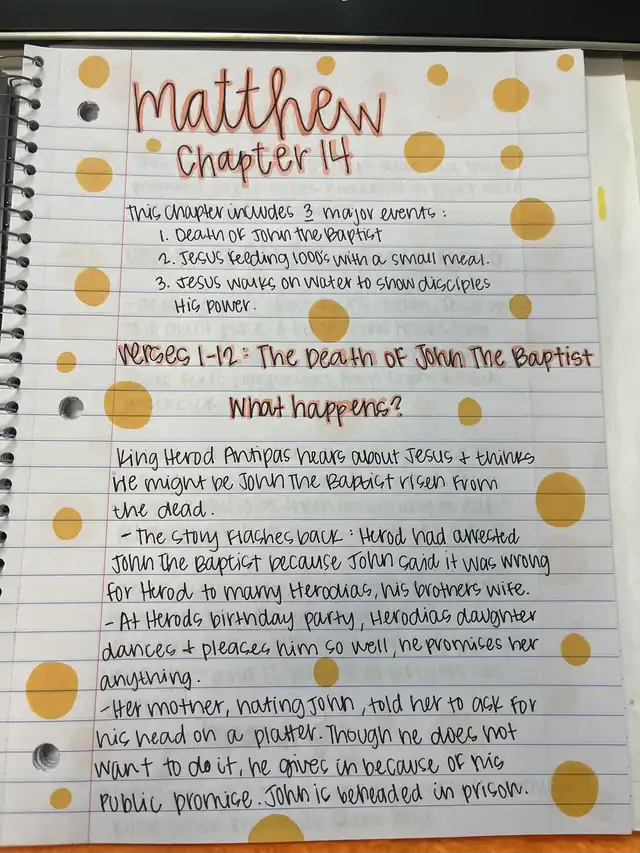 matthew
Chapter 14
This chapter includes 3 major events:
1. Death of John the Baptist
2. Jesus feeding 1000's with a small meal.
3. Jesus walks on water to show disciples
His power.
Verses 1-12: The Death of John The Baptist
What happens?
King Herod Antipas hears about Jesus + thinks
He might be John The Baptist risen from
the dead.
- The story flashes back: Herod had arrested
John The Baptist because John said it was wrong
for Herod to marry Herodias, his brothers wife.
- At Herods birthday party, Herodias daughter
dances + pleases him so well, he promises her
anything.
- Her mother, hating John, told her to ask for
his head on a platter. Though he does not
want to do it, he gives in because of his
public promise. John is beheaded in prison.